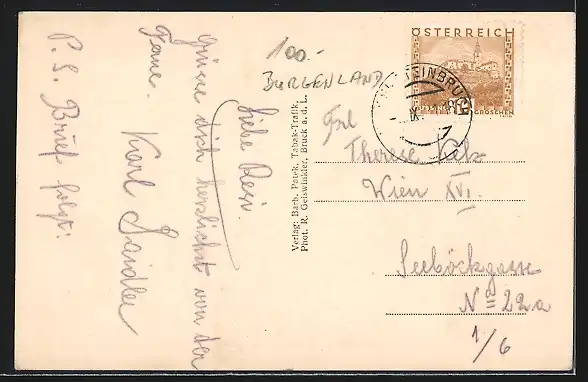 100.-
BURGENLAND
Liebe Resi.
Grüsse dich herzlichst von der
Ferne. Karl Haidler
P. S. Brief folgt!
Verlag: Barb. Patek, Tabak-Trafik,
Phot. R. Geiswinkler, Bruck a. d. L.
ÖSTERREICH
GROSCHEN
Frl
Therese
Wien XVI.
Seeböckgasse
No 22a
1/6